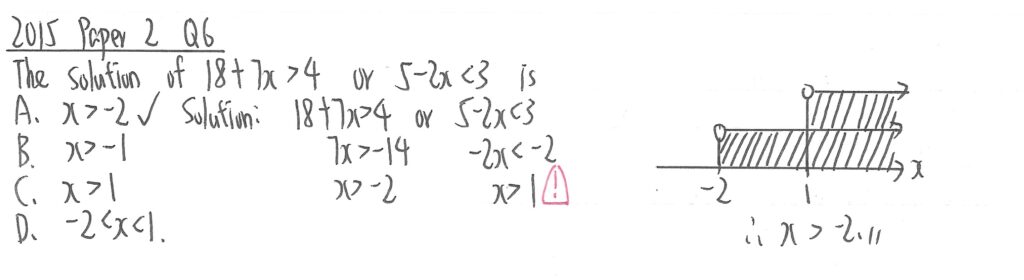 2015 Paper 2 Q6
The solution of 18+7x>4 or 5-2x<3 is
A. x>-2 ✓ Solution: 18+7x>4 or 5-2x<3
B. x>-1 7x>-14 -2x<-2
C. x>1 x>-2 x>1 !
D. -2<x<1.
x
-2 1
∴ x > -2.,,